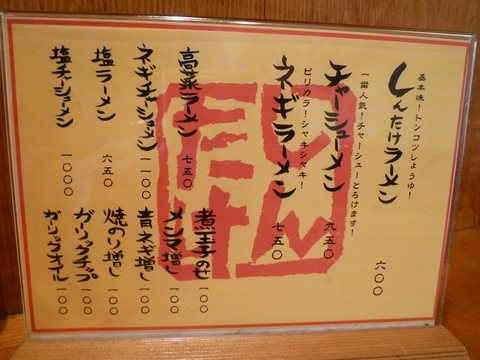 基本味!トンコツしょうゆ!
しんたけラーメン
六〇〇
一番人気!チャーシューとろけます!
チャーシューメン
九五〇
ピリカラ!シャキシャキ!
ネギラーメン
七五〇
高菜ラーメン
七五〇
ネギチャーシューメン
一一〇〇
塩ラーメン
六五〇
塩チャーシューメン
一〇〇〇
煮玉子のせ
一〇〇
メンマ増し
一〇〇
青ネギ増し
一〇〇
焼のり増し
一〇〇
ガーリックチップ
一〇〇
ガーリックオイル
一〇〇
しんたけ